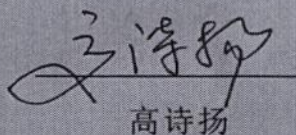 高诗扬
高诗扬